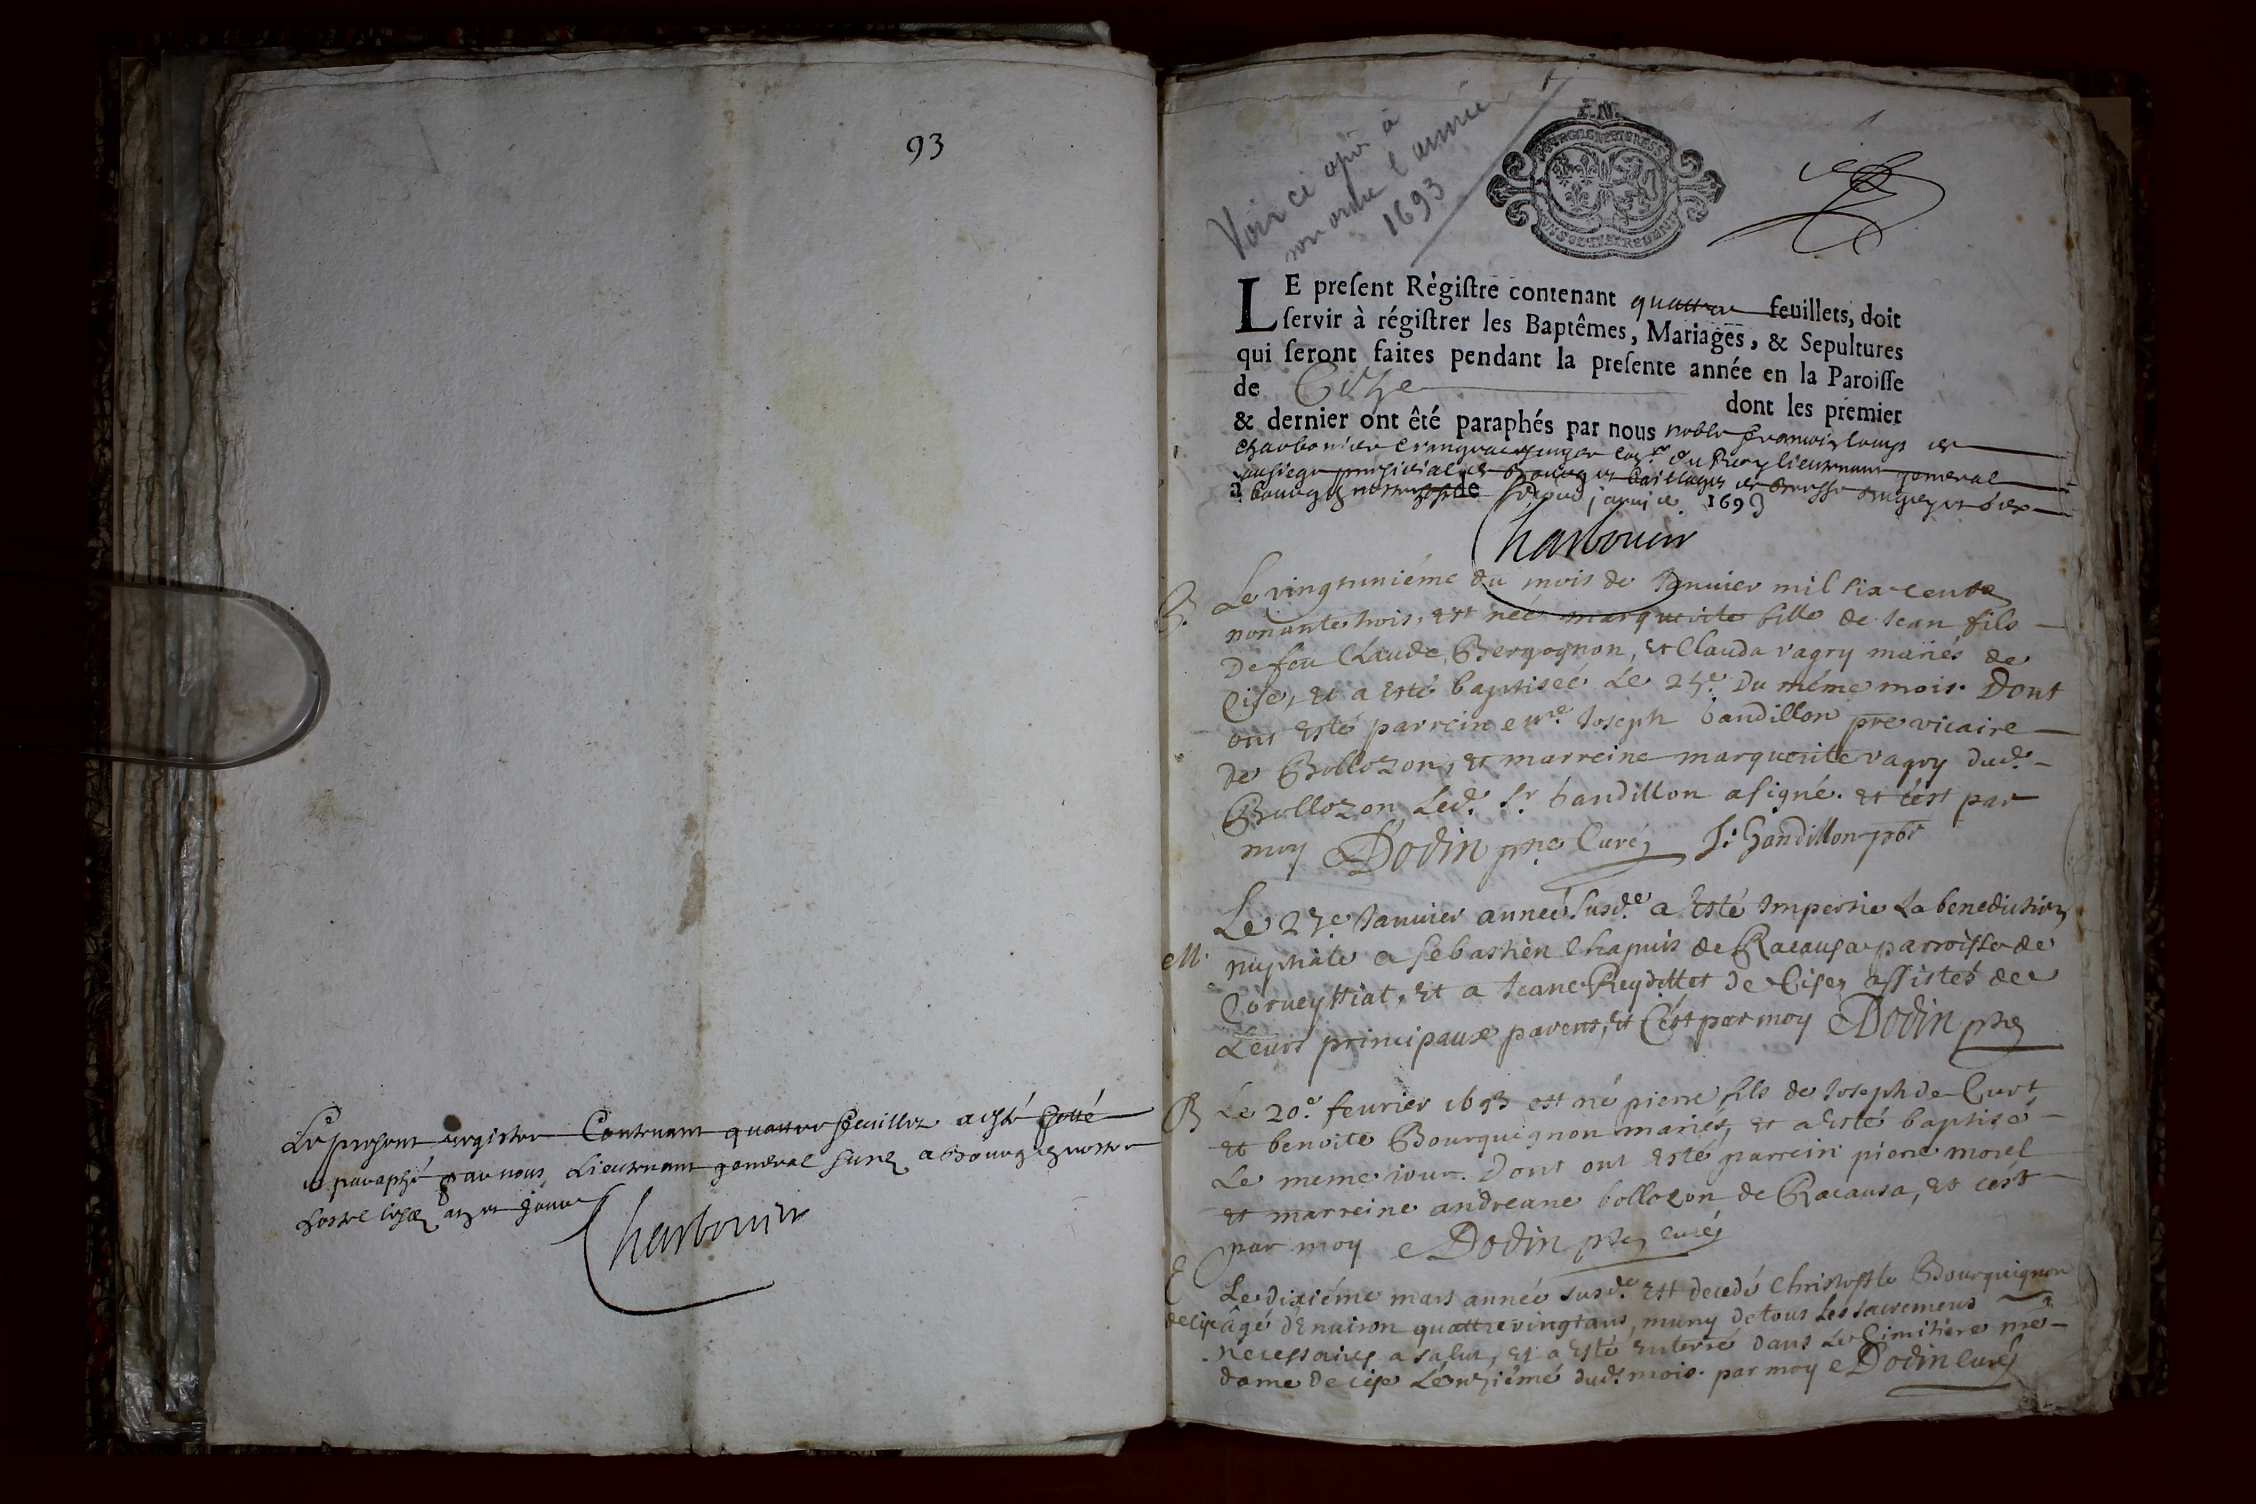 93
Le present registre Contenant quattre feuillez a esté Cotté
et paraphé par nous Lieutenant general susd a Bourg en nostre
hostel les an et jour
Charbonier
Voir ci après à
son ordre l'année
1693
LE present Régistre contenant quattre feuillets, doit
servir à régistrer les Baptêmes, Mariages, & Sepultures
qui seront faites pendant la presente année en la Paroisse
de Cize dont les premier
& dernier ont êté paraphés par nous noble françois louys de
Charbonier Crangeac du Roy lieutenant general
au siege presidial de Bourg et Bailliages de Bresse Bugey et Gex
à Bourg en nostre de janvier 1693
Charbonier
B. Le vingtuniéme du mois de Janvier mil six-cents
nonante trois, est née marguerite fille de Jean fils
De feu Claude Bergognon, et Clauda vagry mariés de
Cise, et a esté baptisée Le 25e. Du méme mois. Dont
ont esté parrein e mre Joseph Gandillon pre vicaire
de Bollozon, et marreine marguerite vagry dud.
Bollozon, Led. Sr. Gandillon a signé. et c'est par
moy Dodin pre Curé J: Gandillon pbr
Le 27e Janvier année susd.e a esté Impertie La benediction
M. nuptiale a sebastien Chapuis de Racousa parroisse de
Corveyssiat, et a Jeane Reydellet de Cise, assistés de
Leurs principaux parens, et C'est par moy Dodin pbre
B Le 20e. fevrier 1693 est né pierre fils de Joseph de Curt
et benoite Bourguignon mariés, et a esté baptisé
Le meme iour. Dont ont esté parrein pierre morel
et marreine andreane bollozon de Racousa, et c'est
par moy Dodin pbre curé
E Le dixiéme mars année susd.e est decedé Christofle Bourguignon
de Cise âgé d'Environ quattre vingt ans, muny de tous les sacremens
necessaires a salut, et a esté enterré dans Le Cimitiere me-
dame de cise Le onziémé dud. mois. par moy Dodin Curé